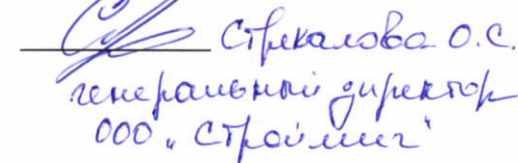 Стрекалова О.С.
генеральный директор
ООО „Строймиг"